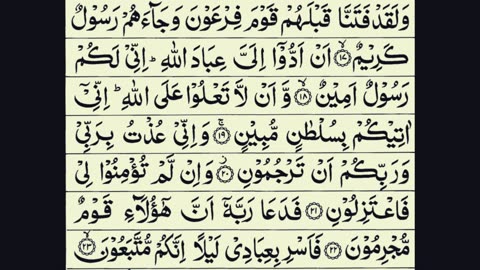 وَلَقَدۡ فَتَنَّا قَبۡلَهُمۡ قَوۡمَ فِرۡعَوۡنَ وَجَآءَهُمۡ رَسُوۡلٌ
كَرِيۡمٌۙ‏ ﴿۱۷﴾ اَنۡ اَدُّوۡۤا اِلَىَّ عِبَادَ اللّٰهِ‌ؕ اِنِّىۡ لَكُمۡ
رَسُوۡلٌ اَمِيۡنٌۙ‏ ﴿۱۸﴾ وَّاَنۡ لَّا تَعۡلُوۡا عَلَى اللّٰهِ‌ۚ اِنِّىۡۤ
اٰتِيۡكُمۡ بِسُلۡطٰنٍ مُّبِيۡنٍ‌ۚ‏ ﴿۱۹﴾ وَاِنِّىۡ عُذۡتُ بِرَبِّىۡ
وَرَبِّكُمۡ اَنۡ تَرۡجُمُوۡنِ‏ ﴿۲۰﴾ وَاِنۡ لَّمۡ تُؤۡمِنُوۡا لِىۡ
فَاعۡتَزِلُوۡنِ‏ ﴿۲۱﴾ فَدَعَا رَبَّهٗۤ اَنَّ هٰٓؤُلَاۤءِ قَوۡمٌ
مُّجۡرِمُوۡنَ‏ ﴿۲۲﴾ فَاَسۡرِ بِعِبَادِىۡ لَيۡلًا اِنَّكُمۡ مُّتَّبَعُوۡنَۙ‏ ﴿۲۳﴾